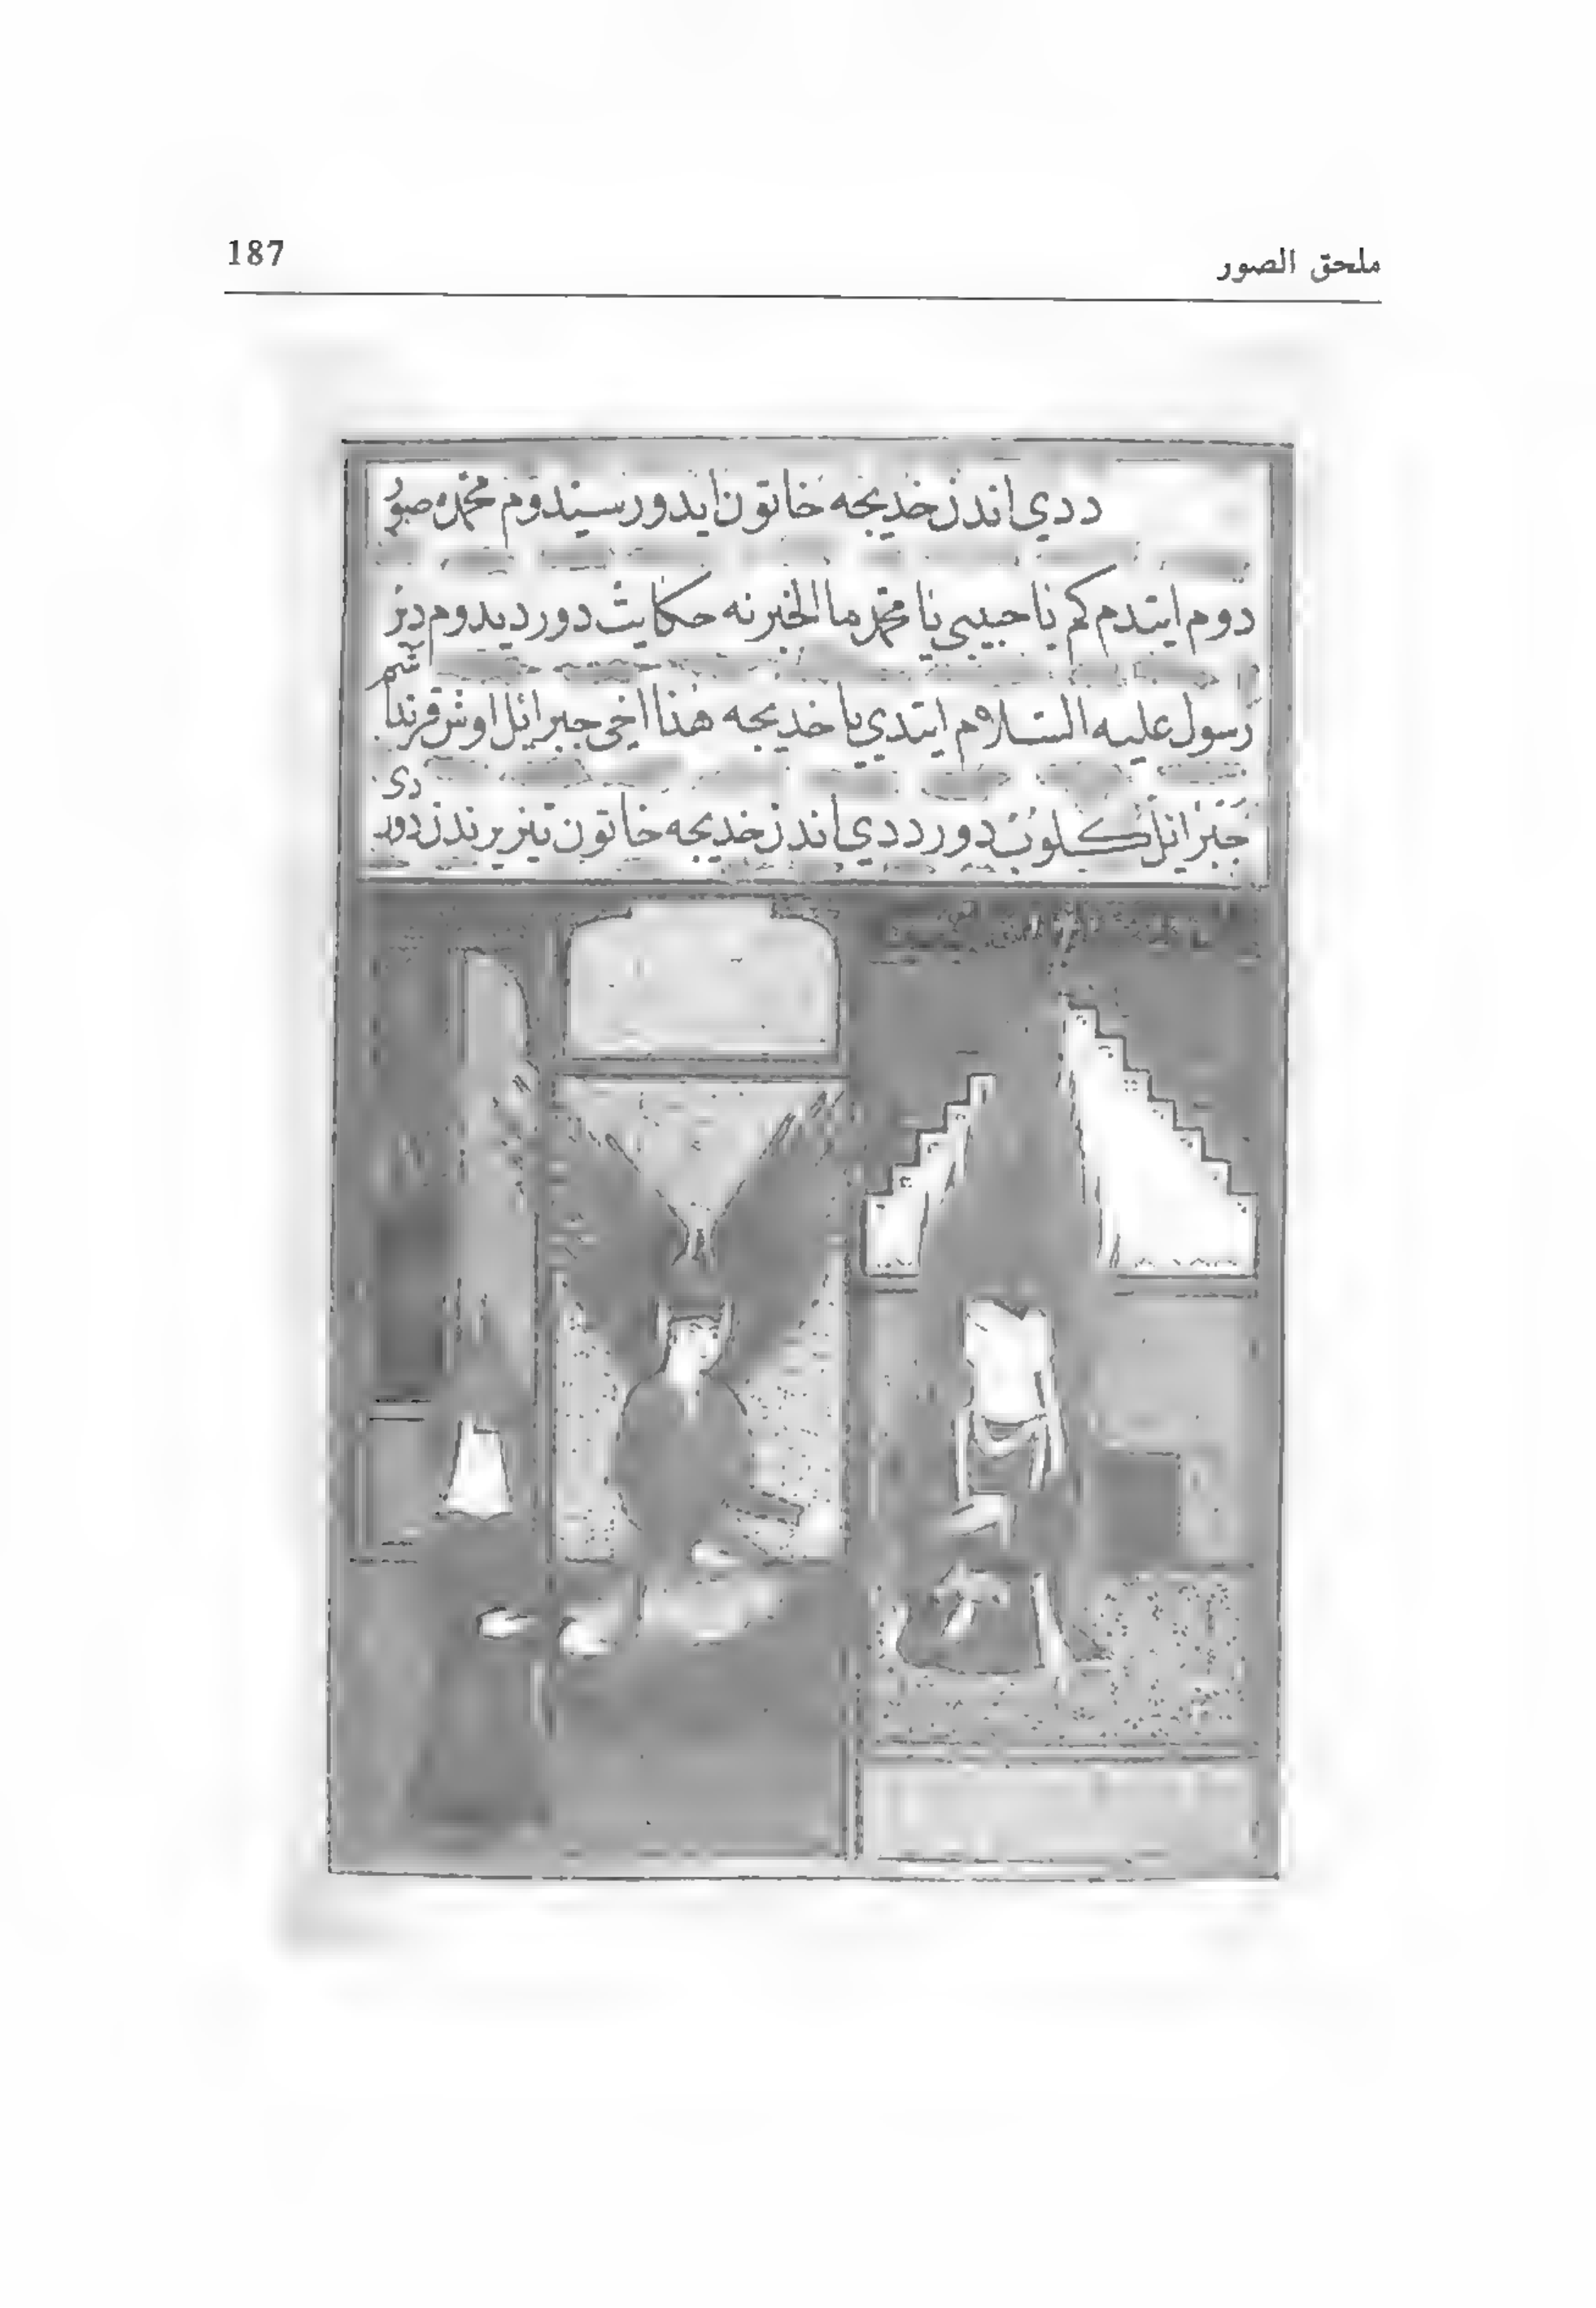 ملحق الصور
187
ددي اندز خديجه خاتون ايدور سيندوم محمده صور
دوم ايتدم كم يا حبيبي يا محمد ما الخبر نه حكايت دور ديدوم دير
رسول عليه السلام ايتدي يا خديجه هذا اخي جبرائل اوش قرنداشم
جبرائل كلوب دورر ددي اندز خديجه خاتون تيز يرندن دور
دى